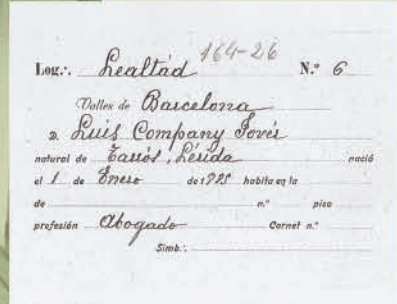 164-26
Log∴ Lealtád N.º 6
Valles de Barcelona
D. Luis Company Jovés
natural de Tarrós, Lérida nació
el 1 de Enero de 1885 habita en la
de n.º piso
profesión Abogado Carnet n.º
Simb∴